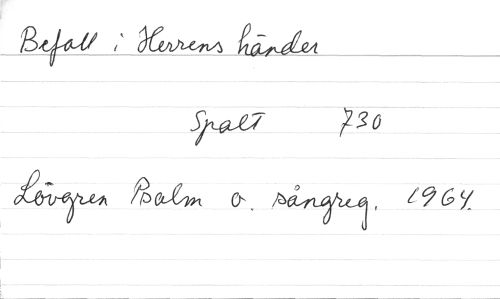 Befall i Herrens händer
Spalt 730
Lövgren Psalm o. sångreg. 1964.